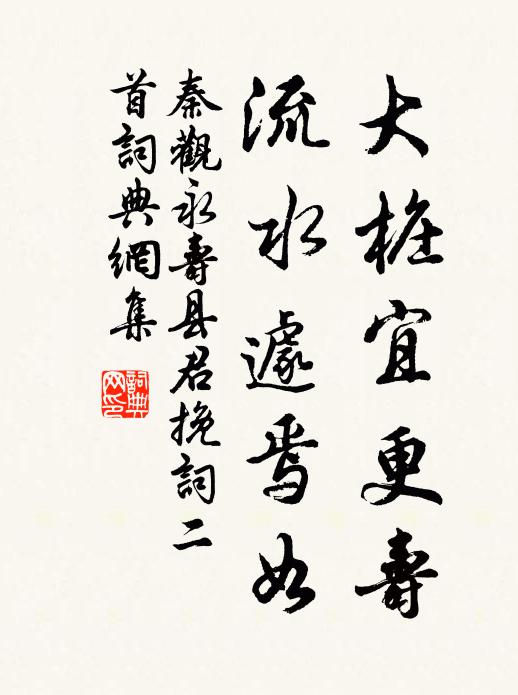 大椿宜更壽
流水遽焉如
秦觀永壽县君挽詞二
首詞典網集
詞典
网印